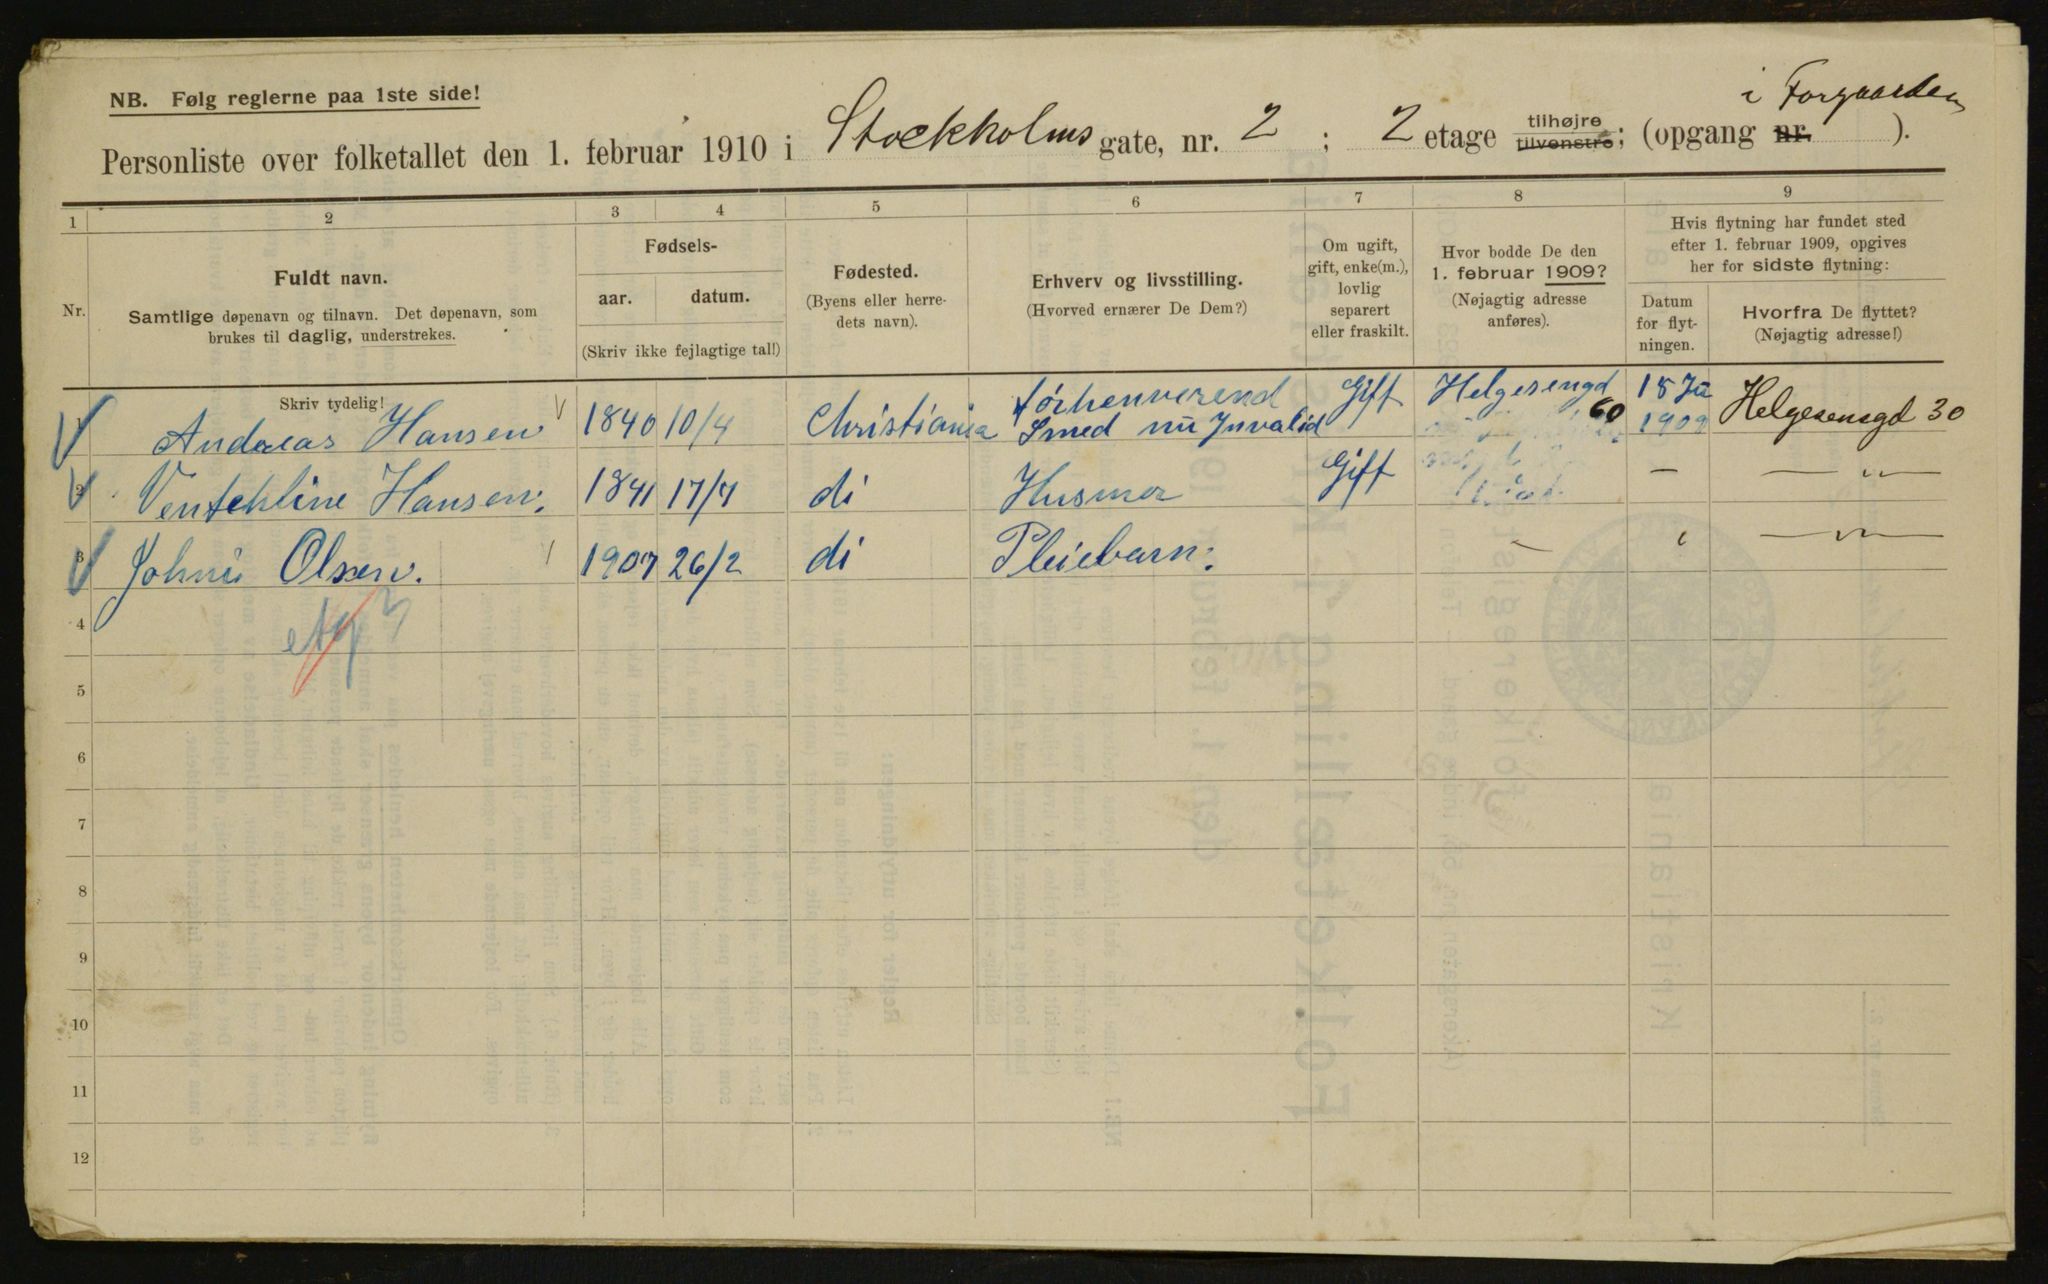 NB. Følg reglerne paa 1ste side!
i Forgaarden
Personliste over folketallet den 1. februar 1910 i Stockholms gate, nr. 2 ; 2 etage tilhøjre tilvenstre; (opgang nr. ).
1 2 3 4 5 6 7 8 9
Nr.
Fuldt navn.
Samtlige døpenavn og tilnavn. Det døpenavn, som
brukes til daglig, understrekes.
Skriv tydelig!
Fødsels-
aar. datum.
(Skriv ikke fejlagtige tal!)
Fødested.
(Byens eller herre-
dets navn).
Erhverv og livsstilling.
(Hvorved ernærer De Dem?)
Om ugift,
gift, enke(m.),
lovlig
separert
eller fraskilt.
Hvor bodde De den
1. februar 1909?
(Nøjagtig adresse
anføres).
Hvis flytning har fundet sted
efter 1. februar 1909, opgives
her for sidste flytning:
Datum
for flyt-
ningen.
Hvorfra De flyttet?
(Nøjagtig adresse!)
1 Andreas Hansen 1840 10/4 Christiania forhenverend Smed nu Invalid Gift Helgesengd 60 18 Ju 1909 Helgesensgd 30
2 Ventchline Hansen. 1841 17/7 di Husmor Gift — — " —
3 Johni Olsen. 1907 26/2 di Pleiebarn. — " — " —
4
5
6
7
8
9
10
11
12